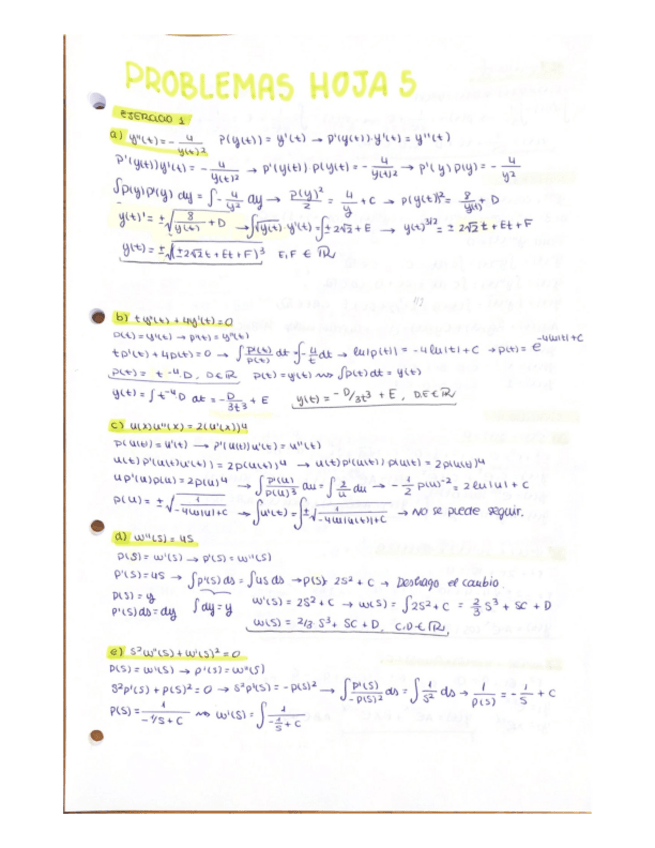 PROBLEMAS HOJA 5
EJERCICIO 1
a) y''(t) = - 4/y(t)² P(y(t)) = y'(t) → P'(y(t))·y'(t) = y''(t)
P'(y(t))y'(t) = - 4/y(t)² → P'(y(t))·P(y(t)) = - 4/y(t)² → P'(y)P(y) = - 4/y²
∫P(y)P'(y) dy = ∫- 4/y² dy → P(y)²/2 = 4/y + C → P(y(t))² = 8/y(t) + D
y(t)' = ±√(8/y(t) + D) → ∫√y(t)·y'(t) = ∫±2√2 + E → y(t)^3/2 = ±2√2 t + Et + F
y(t) = ±√(±2√2 t + Et + F)³ E,F ∈ ℝ
b) ty''(t) + 4y'(t) = 0
P(t) = y'(t) → P'(t) = y''(t)
tP'(t) + 4P(t) = 0 → ∫P'(t)/P(t) dt = ∫- 4/t dt → ln|P(t)| = -4ln|t| + C → P(t) = e^-4ln|t|+C
P(t) = t^-4 D, D∈ℝ P(t) = y'(t) ⇝ ∫P(t)dt = y(t)
y(t) = ∫t^-4 D dt = - D/3t³ + E y(t) = -D/3t³ + E, D,E∈ℝ
c) u(x)u''(x) = 2(u'(x))⁴
P(u(t)) = u'(t) → P'(u(t))u'(t) = u''(t)
u(t)P'(u(t)u'(t)) = 2P(u(t))⁴ → u(t)P'(u(t))P(u(t)) = 2P(u(t))⁴
uP'(u)P(u) = 2P(u)⁴ → ∫P'(u)/P(u)³ du = ∫2/u du → - 1/2 P(u)^-2 = 2ln|u| + C
P(u) = ±√(1/-4ln|u|+C) → ∫u'(t) = ∫±√(1/-4ln|u(t)|+C) → No se puede seguir.
d) w''(s) = 4s
P(s) = w'(s) → P'(s) = w''(s)
P'(s) = 4s → ∫P'(s)ds = ∫4s ds → P(s) = 2s² + C → Deshago el cambio.
P(s) = y ∫dy = y w'(s) = 2s² + C → w(s) = ∫2s² + C = 2/3 s³ + sC + D
P'(s)ds = dy
w(s) = 2/3 s³ + sC + D, C,D∈ℝ
e) s²w''(s) + w'(s)² = 0
P(s) = w'(s) → P'(s) = w''(s)
s²P'(s) + P(s)² = 0 → s²P'(s) = -P(s)² → ∫P'(s)/-P(s)² ds = ∫1/s² ds → 1/P(s) = - 1/s + C
P(s) = 1/-1/s + C ⇝ w'(s) = ∫ 1/- 1/s + C